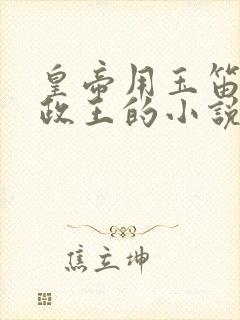 皇帝用玉笛
政王的小説
焦立坤